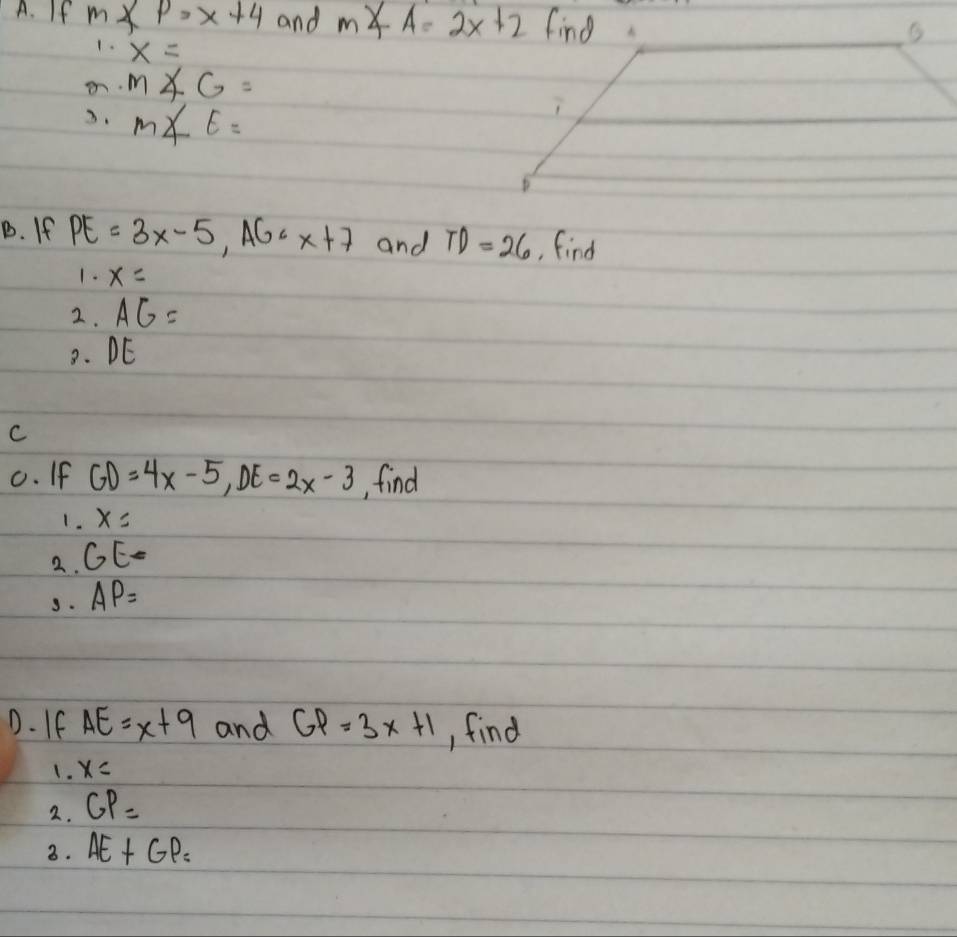 A. If m∡ P = x + 4 and m∡ A = 2x + 2 find
1. x =
2. m∡ G =
3. m∡ E =
A G
T
P
B. If PE = 3x - 5, AG = x + 7 and TD = 26, find
1. x =
2. AG =
3. DE
C
C. If GD = 4x - 5, DE = 2x - 3, find
1. x =
2. GE =
3. AP =
D. If AE = x + 9 and GP = 3x + 1, find
1. x =
2. GP =
3. AE + GP =